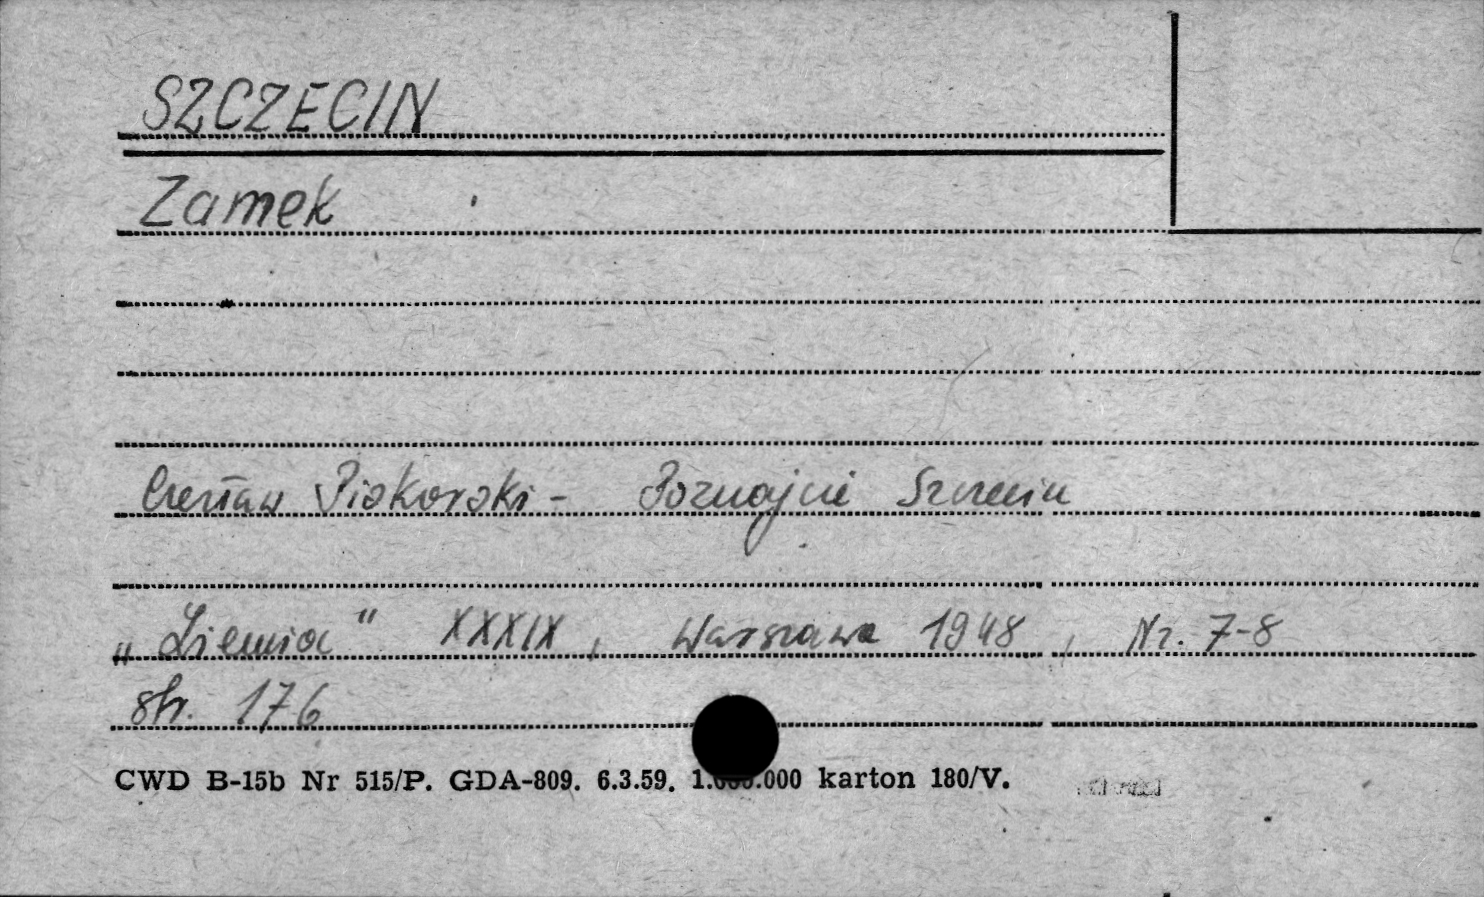 SZCZECIN
Zamek
Czesław Piskorski - Poznajcie Szczecin
„Ziemia" XXXIX, Warszawa 1948, Nr. 7-8
str. 176
CWD B-15b Nr 515/P. GDA-809. 6.3.59. 1.000.000 karton 180/V.